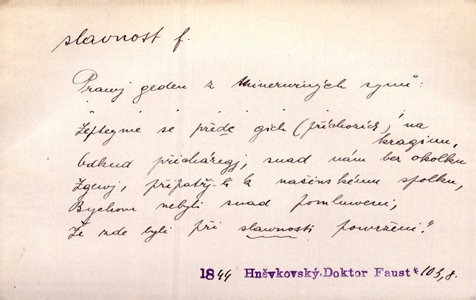 slavnost f.
Prawj geden z Minerwiných synů:
„Zeptegme se přede gich (příchozích) na
kraginu,
Odkud přicházegj, snad nám bez okolku
Zgewj, připatřj-li k našinskému spolku,
Bychom nebyli snad pomluweni,
Že zde byli při slavnosti powrženi."
1844 Hněvkovský-Doktor Faust 103,8.